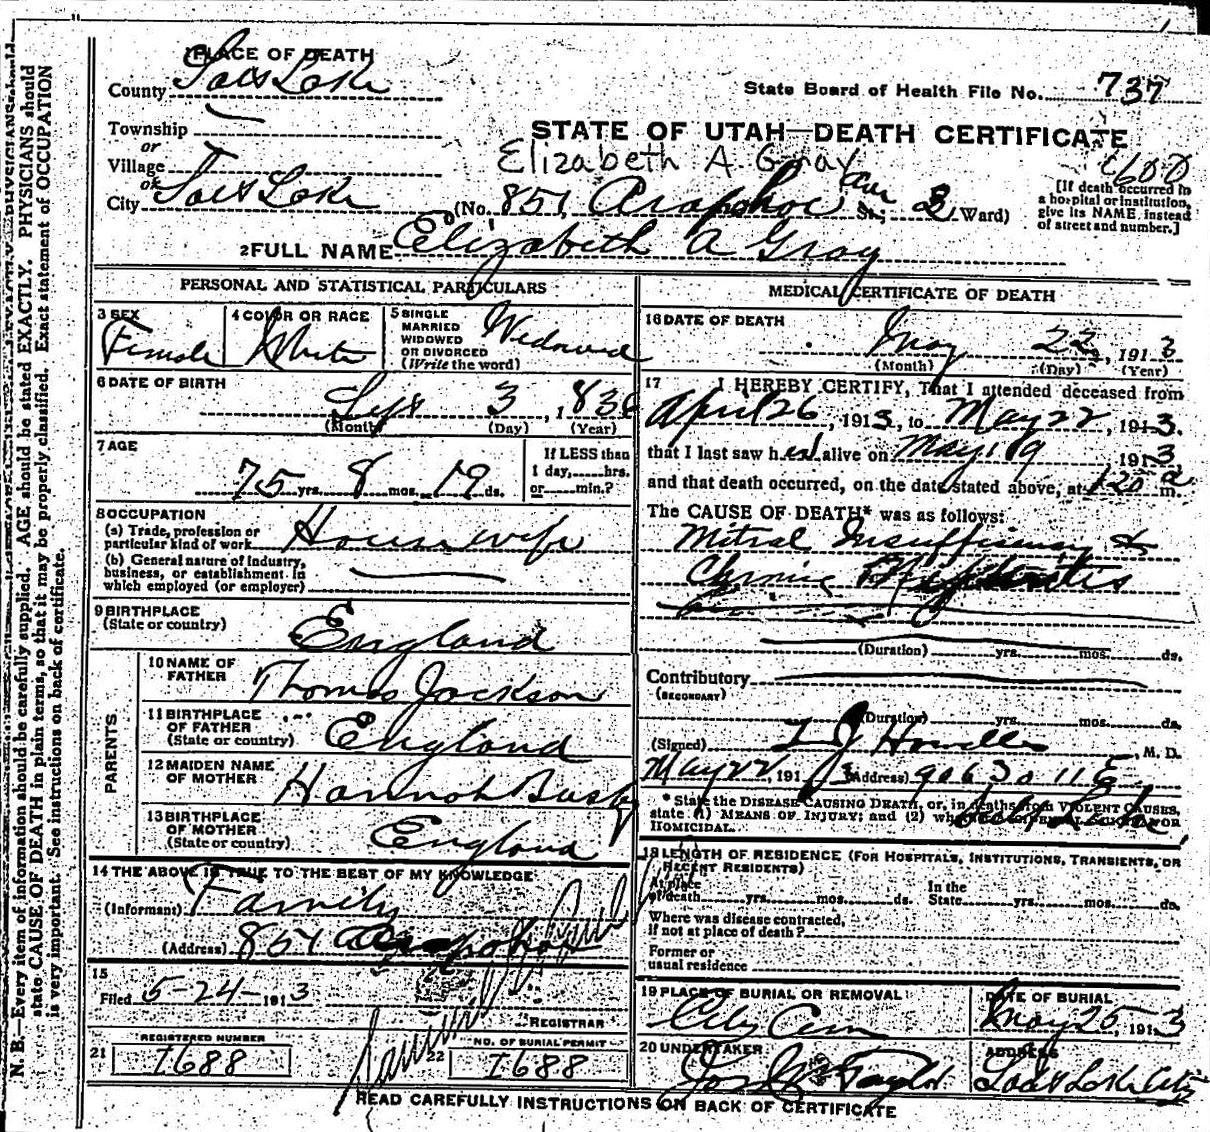 1 PLACE OF DEATH
County Salt Lake
State Board of Health File No. 737
Township
or
Village
or
City Salt Lake
STATE OF UTAH—DEATH CERTIFICATE
Elizabeth A Gray
(No. 851 Arapahoe Ave St; 3 Ward)
[If death occurred in
a hospital or institution,
give its NAME instead
of street and number.]
2 FULL NAME Elizabeth A Gray
PERSONAL AND STATISTICAL PARTICULARS
3 SEX
Female
4 COLOR OR RACE
White
5 SINGLE
MARRIED
WIDOWED
OR DIVORCED
(Write the word)
Widowed
6 DATE OF BIRTH
Sept 3, 183
(Month) (Day) (Year)
7 AGE
75 yrs. 8 mos. 19 ds.
If LESS than
1 day, hrs.
or min.?
8 OCCUPATION
(a) Trade, profession or
particular kind of work Housewife
(b) General nature of industry,
business, or establishment in
which employed (or employer)
9 BIRTHPLACE
(State or country) England
PARENTS
10 NAME OF
FATHER Thomas Jackson
11 BIRTHPLACE
OF FATHER
(State or country) England
12 MAIDEN NAME
OF MOTHER Hannah Busby
13 BIRTHPLACE
OF MOTHER
(State or country) England
14 THE ABOVE IS TRUE TO THE BEST OF MY KNOWLEDGE
(Informant) Family
(Address) 851 Arapahoe
15
Filed 5-24-1913
REGISTRAR
21 REGISTERED NUMBER
I688
22 NO. OF BURIAL PERMIT
I688
MEDICAL CERTIFICATE OF DEATH
16 DATE OF DEATH
May 22, 1913
(Month) (Day) (Year)
17 I HEREBY CERTIFY, That I attended deceased from
April 26, 1913, to May 22, 1913.
that I last saw her alive on May 19 1913
and that death occurred, on the date stated above, at 120 a m.
The CAUSE OF DEATH* was as follows:
Mitral Insufficiency &
Chronic
(Duration) yrs. mos. ds.
Contributory
(SECONDARY)
(Duration) yrs. mos. ds.
(Signed) Howells, M. D.
May 22 1913 (Address) 906 30 11 E
Salt Lake
* State the DISEASE CAUSING DEATH, or, in deaths from VIOLENT CAUSES,
state (1) MEANS OF INJURY; and (2) OR
HOMICIDAL.
18 LENGTH OF RESIDENCE (FOR HOSPITALS, INSTITUTIONS, TRANSIENTS, OR
RECENT RESIDENTS)
At place
of death yrs. mos. ds. In the
State yrs. mos. ds.
Where was disease contracted,
if not at place of death?
Former or
usual residence
19 PLACE OF BURIAL OR REMOVAL
City Cem
DATE OF BURIAL
May 25, 1913
20 UNDERTAKER
Taylor
ADDRESS
Salt Lake City
READ CAREFULLY INSTRUCTIONS ON BACK OF CERTIFICATE
N. B.—Every item of information should be carefully supplied. AGE should be stated EXACTLY. PHYSICIANS should
state CAUSE OF DEATH in plain terms, so that it may be properly classified. Exact statement of OCCUPATION
is very important. See instructions on back of certificate.